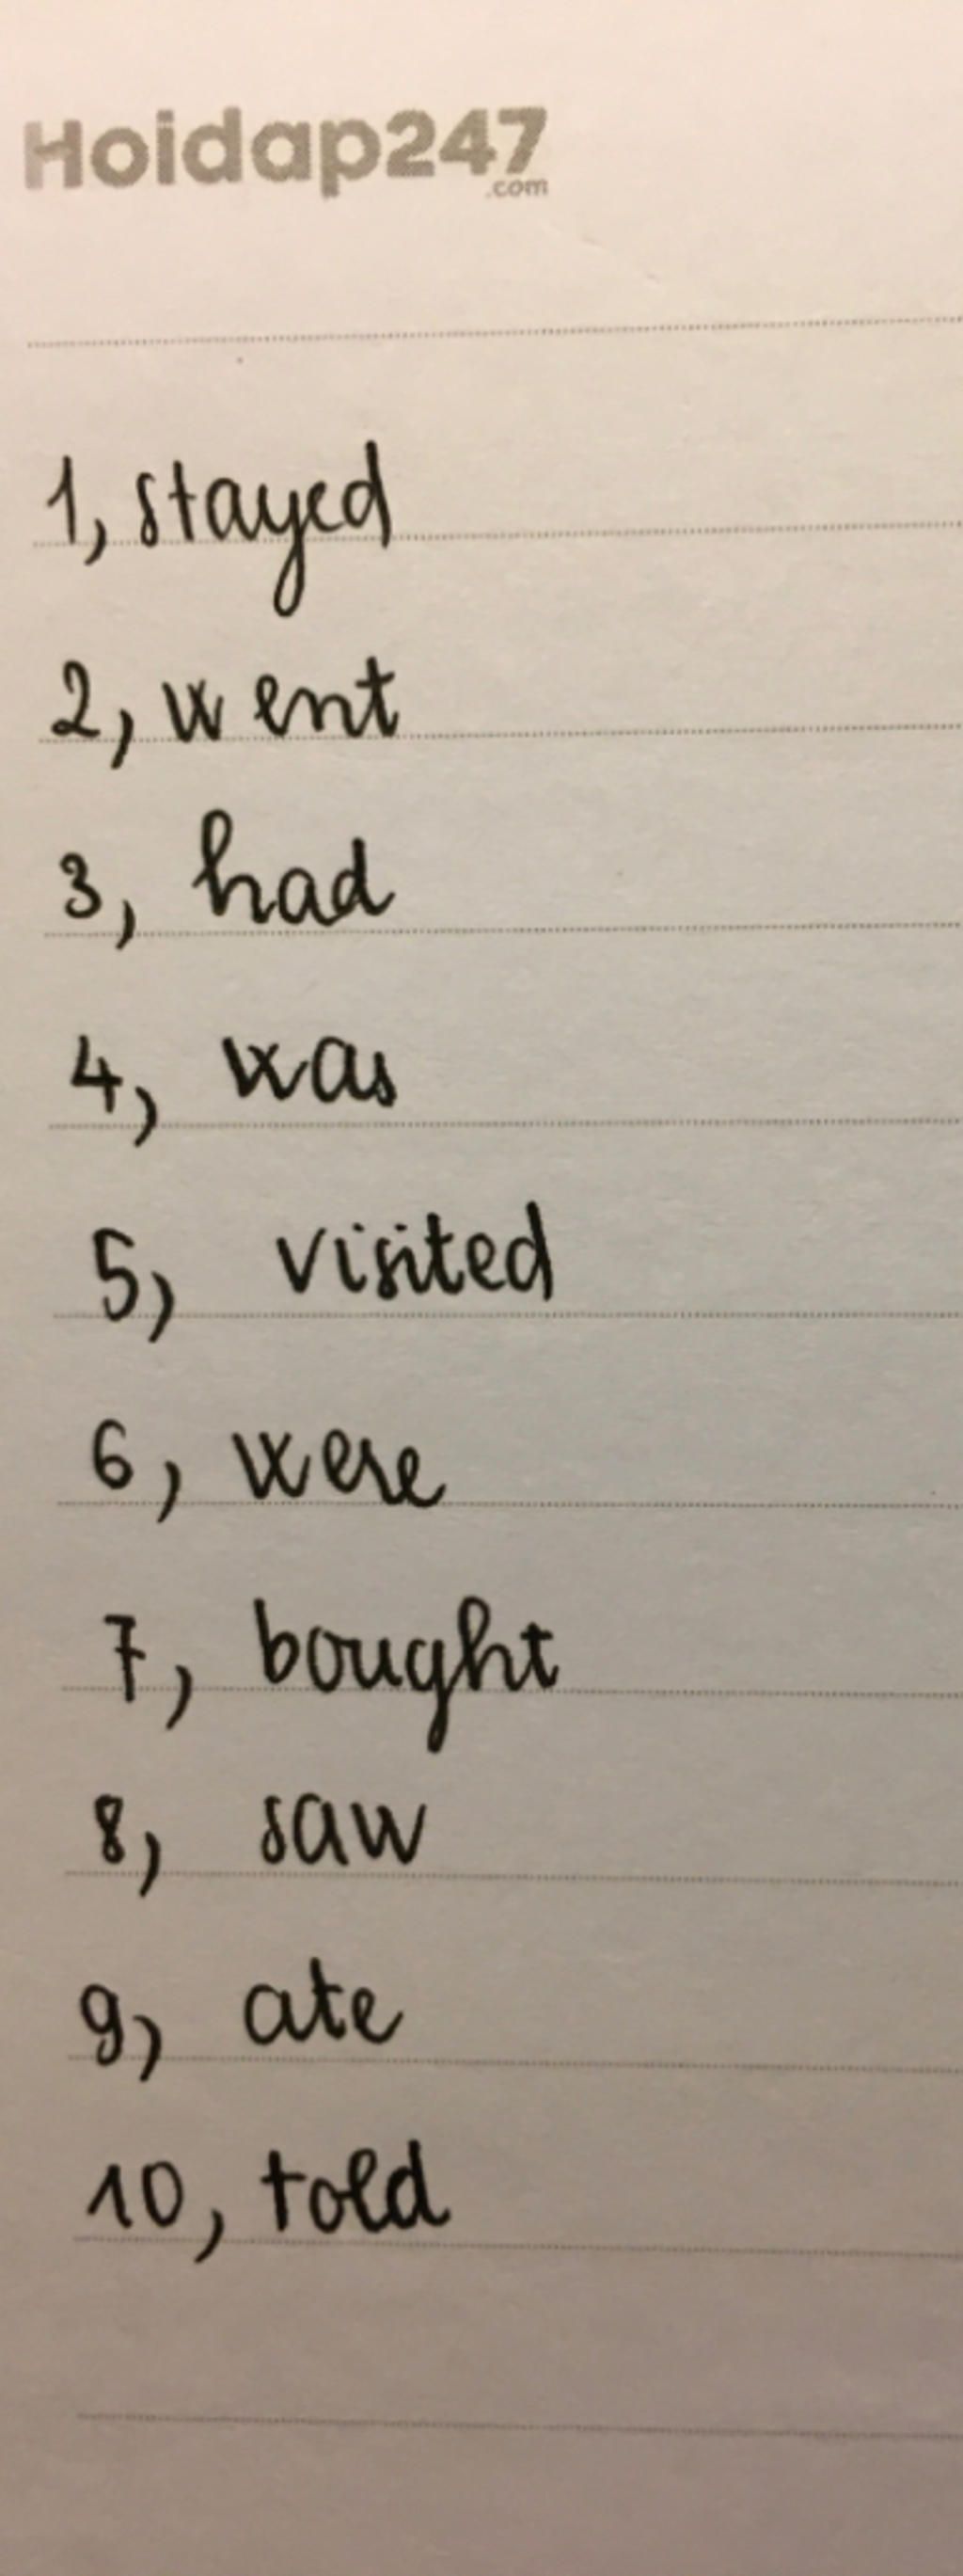 Hoidap247
.com
1, stayed
2, went
3, had
4, was
5, visited
6, were
7, bought
8, saw
9, ate
10, told